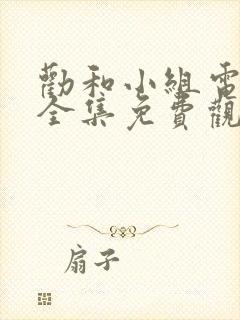 勸和小組電
全集免費觀
扇子